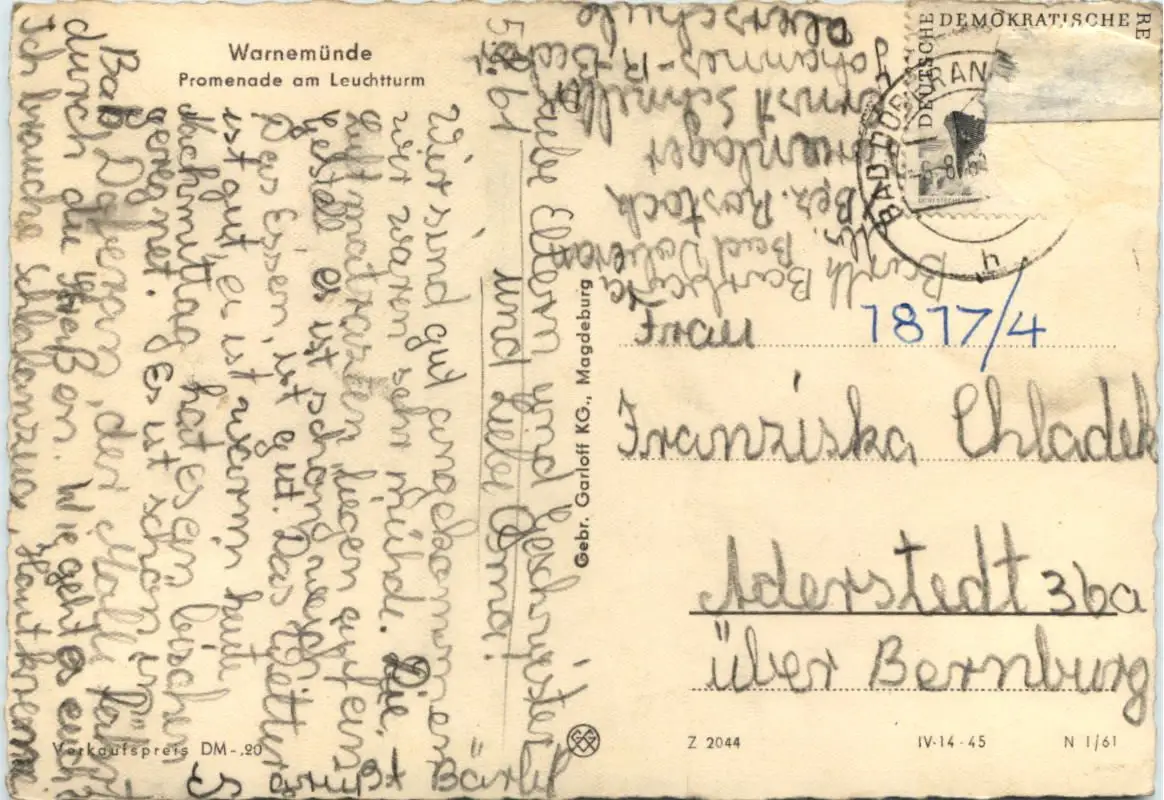 Warnemünde
Promenade am Leuchtturm
5.8.61
Liebe Eltern und Geschwister
und liebe Oma!
Wir sind gut angekommen
wir waren sehr mühde. Die
Luftmatrazen liegen auf ein
Gestell es ist schön weich
Das Essen ist gut. Das Wetter
ist gut, es ist warm heute
Nachmittag hat es ein bischen
geregnet. Es ist schön in
Bad Doberan, der Molli
durch die Straßen. Wie geht es euch?
Ich brauche Schlafanzug, Hautkrem
Es grüßt Bärbel
Verkaufspreis DM -,20
Gebr. Garloff KG., Magdeburg
Barth Barbara
Bad Doberan
Bez. Rostock
Ernst Schneller
Johannes-R-Becher
Oberschule
DEUTSCHE DEMOKRATISCHE RE
BAD DOBERAN
Frau
1817/4
Franziska Chladek
Aderstedt 36a
über Bernburg
Z 2044
IV-14-45
N 1/61